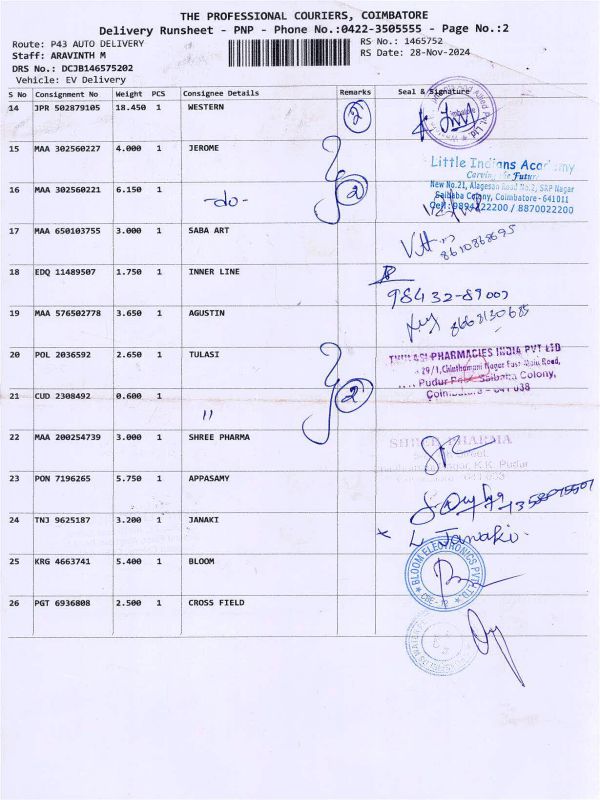 THE PROFESSIONAL COURIERS, COIMBATORE
Delivery Runsheet - PNP - Phone No.:0422-3505555 - Page No.:2
Route: P43 AUTO DELIVERY RS No.: 1465752
Staff: ARAVINTH M RS Date: 28-Nov-2024
DRS No.: DCJB146575202
Vehicle: EV Delivery
S No Consignment No Weight PCS Consignee Details Remarks Seal & Signature
14 JPR 502879105 18.450 1 WESTERN 2
15 MAA 302560227 4.000 1 JEROME
Little Indians Academy
Carving the Future
New No.21, Alagesan Road No.2, SRP Nagar
Saibaba Colony, Coimbatore - 641011
Cell: 9894222200 / 8870022200
16 MAA 302560221 6.150 1 -do- 2
17 MAA 650103755 3.000 1 SABA ART
8610868695
18 EDQ 11489507 1.750 1 INNER LINE
98432-89007
19 MAA 576502778 3.650 1 AGUSTIN
8668130685
20 POL 2036592 2.650 1 TULASI
PHARMACIES INDIA PVT LTD
29/1, Chinthamani Nagar East Main Road,
Pudur Saibaba Colony,
Coimbatore - 641 038
21 CUD 2308492 0.600 1 11 2
22 MAA 200254739 3.000 1 SHREE PHARMA
SHREE PHARMA
Nagar, K.K. Pudur
23 PON 7196265 5.750 1 APPASAMY
24 TNJ 9625187 3.200 1 JANAKI
L Janaki
25 KRG 4663741 5.400 1 BLOOM
BLOOM ELECTRONICS PVT LTD
CBE-12
26 PGT 6936808 2.500 1 CROSS FIELD